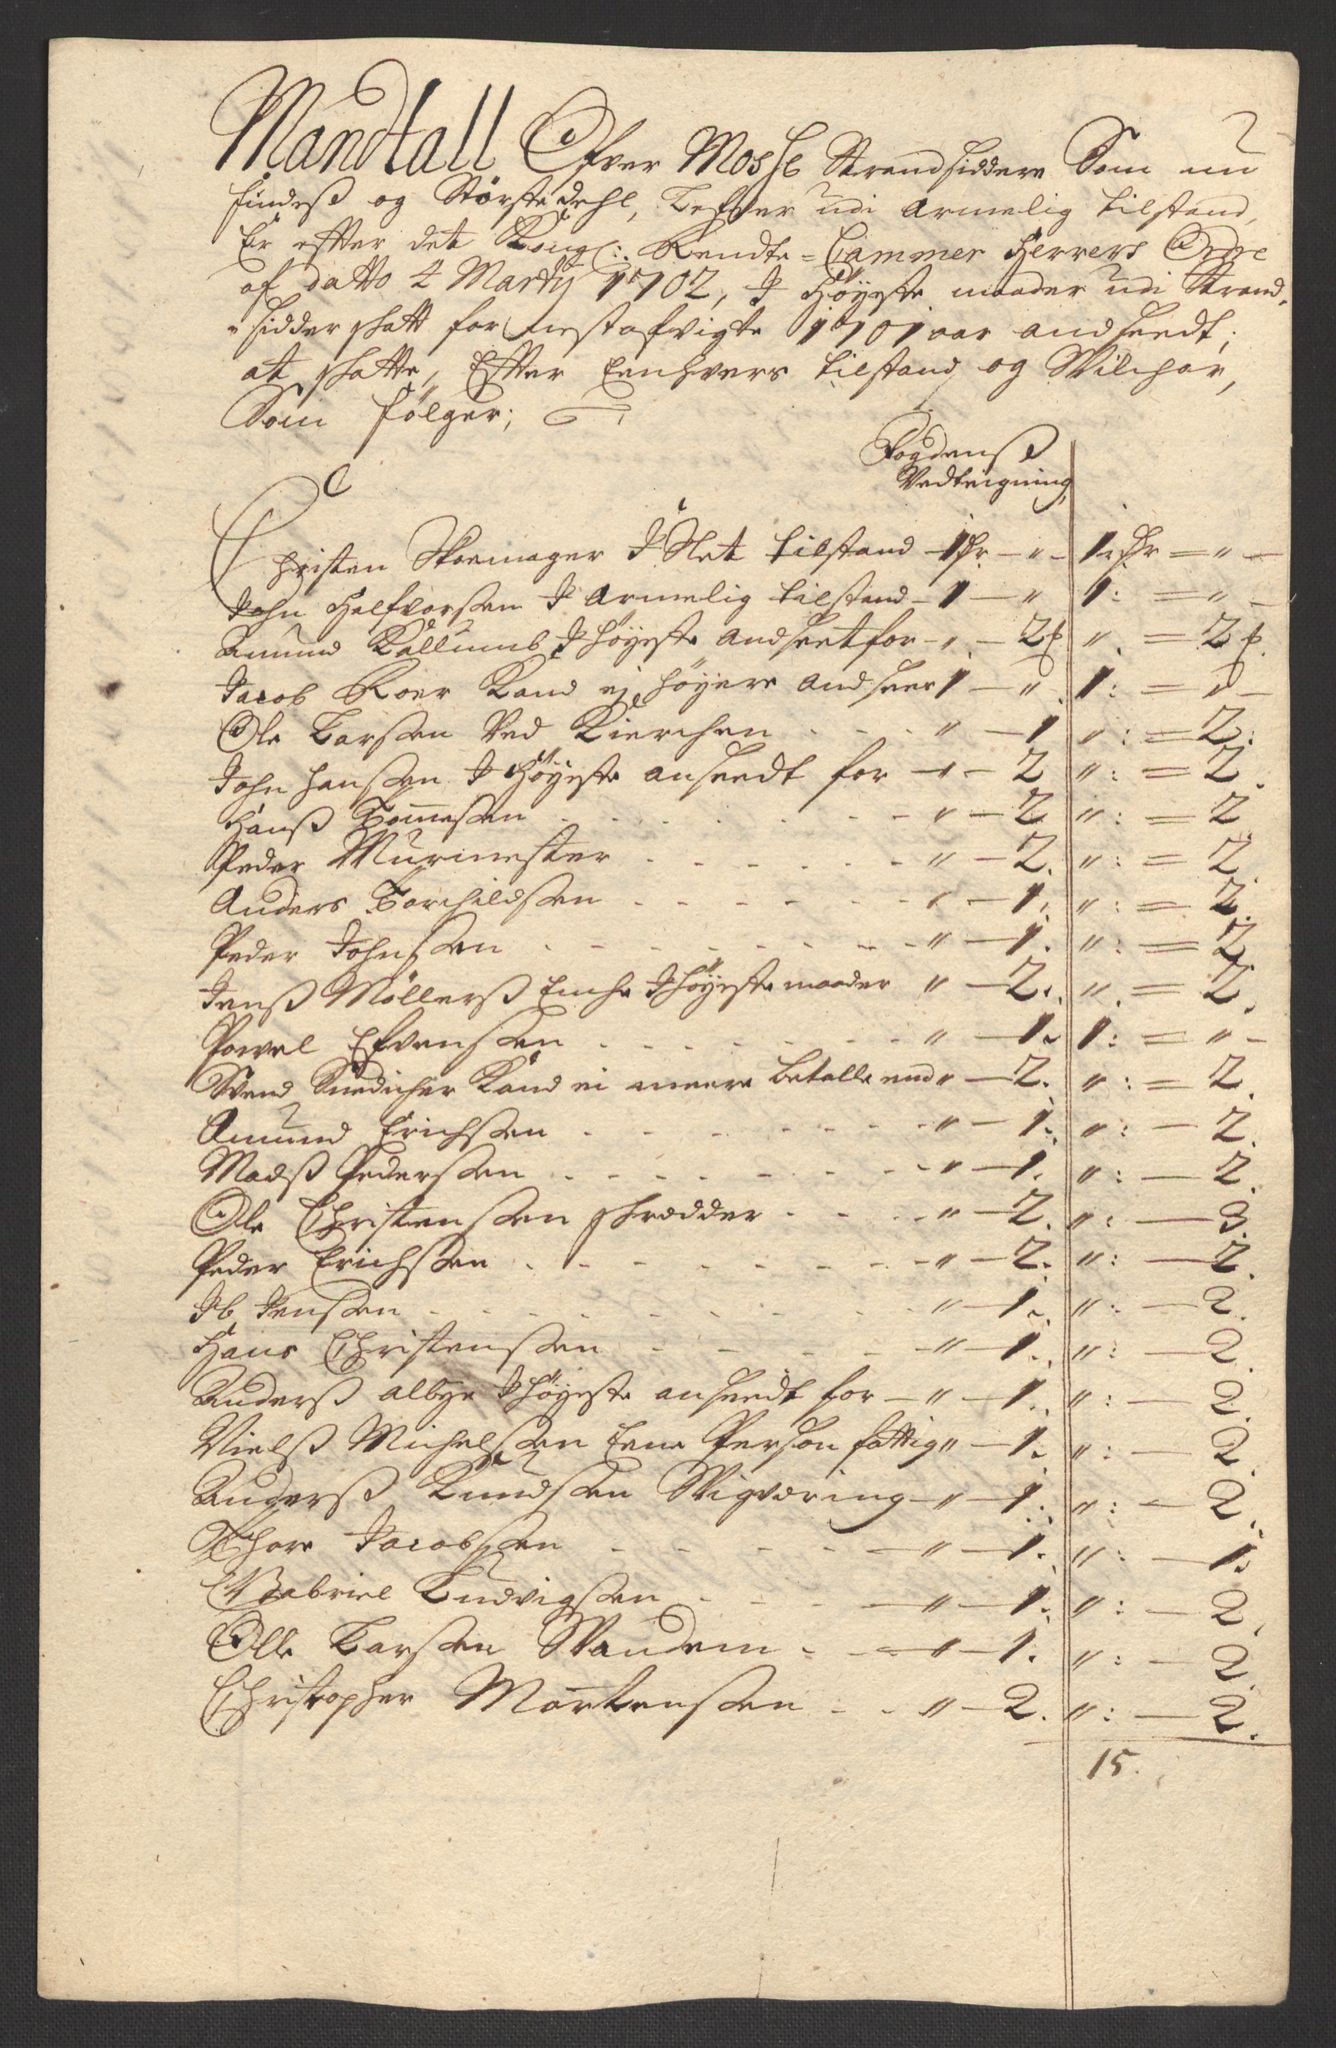 Mandtall Ofver Mosse Strandsiddere Som nu
findeß og Størstedehl, Lefver udi Armelig tilstand,
Er effter det Kongl: Rendte-Cammer Herrers Ordre
af datto 4 Marty 1702, I Høyeste maader udi Strand-
sidder skatt for nestafvigte 1701 aar andseedt,
at skatte, Effter Eenhvers tilstand og Wilchor,
Som følger;
Fogdenß
Vedteigning
Christen Skoemager I Slet tilstand - 1 Dr - " - 1: Dr = " -
John Halfvorsen I Armelig tilstand - 1 - " 1: = " -
Amund Kallumb I høyeste andseet for - ". - 2 ". = 2
Jacob Roer Kand ej høyere andsees 1 - ". 1: = " -
Ole Larsen Ved Kierchen - - - " - 1 ": = 2:
John Hansen I Høyeste anseedt for - " - 2 ": = 2.
Hanß Tommesen - - - " - 2 ": = 2
Peder Murmester - - - " - 2. ": = 2.
Anders Torchildsen - - - " - 1. ": = 2.
Peder Johnsen - - - " - 1. ": = 2
Jenß Møllerß Encke I høyeste maader " - 2. ". = 2.
Powel Efvensen - - - " - 1. 1: = " -
Svend Snedicher Kand ei meere betalle end " - 2. ": = 2.
Amund Erichsen - - - " - 1. ": - 2.
Madß Pedersen - - - " - 1. ": - 2.
Ole Christensen skrædder - - - " - 2. ": - 3.
Peder Erichsen - - - " - 2. ": - 2.
Ib Jensen - - - " - 1. ": - 2.
Hans Christensen - - - " - 1. ": - 2.
Anderß Albye I høyeste anseedt for - " - 1. ": - 2.
Nielß Michelsen Eene Person fattig " - 1. ": - 2.
Anderß Knudsen Wigværing - " - 1. ": - 2.
Thore Jacobsen - - - " - 1. ": - 1:
Gabriel Ludvigsen - - - " - 1. ": - 2.
Olle Larsen Wandem - - - " - 1. ": - 2.
Christopher Mortensen - - " - 2. ": - 2.
15.